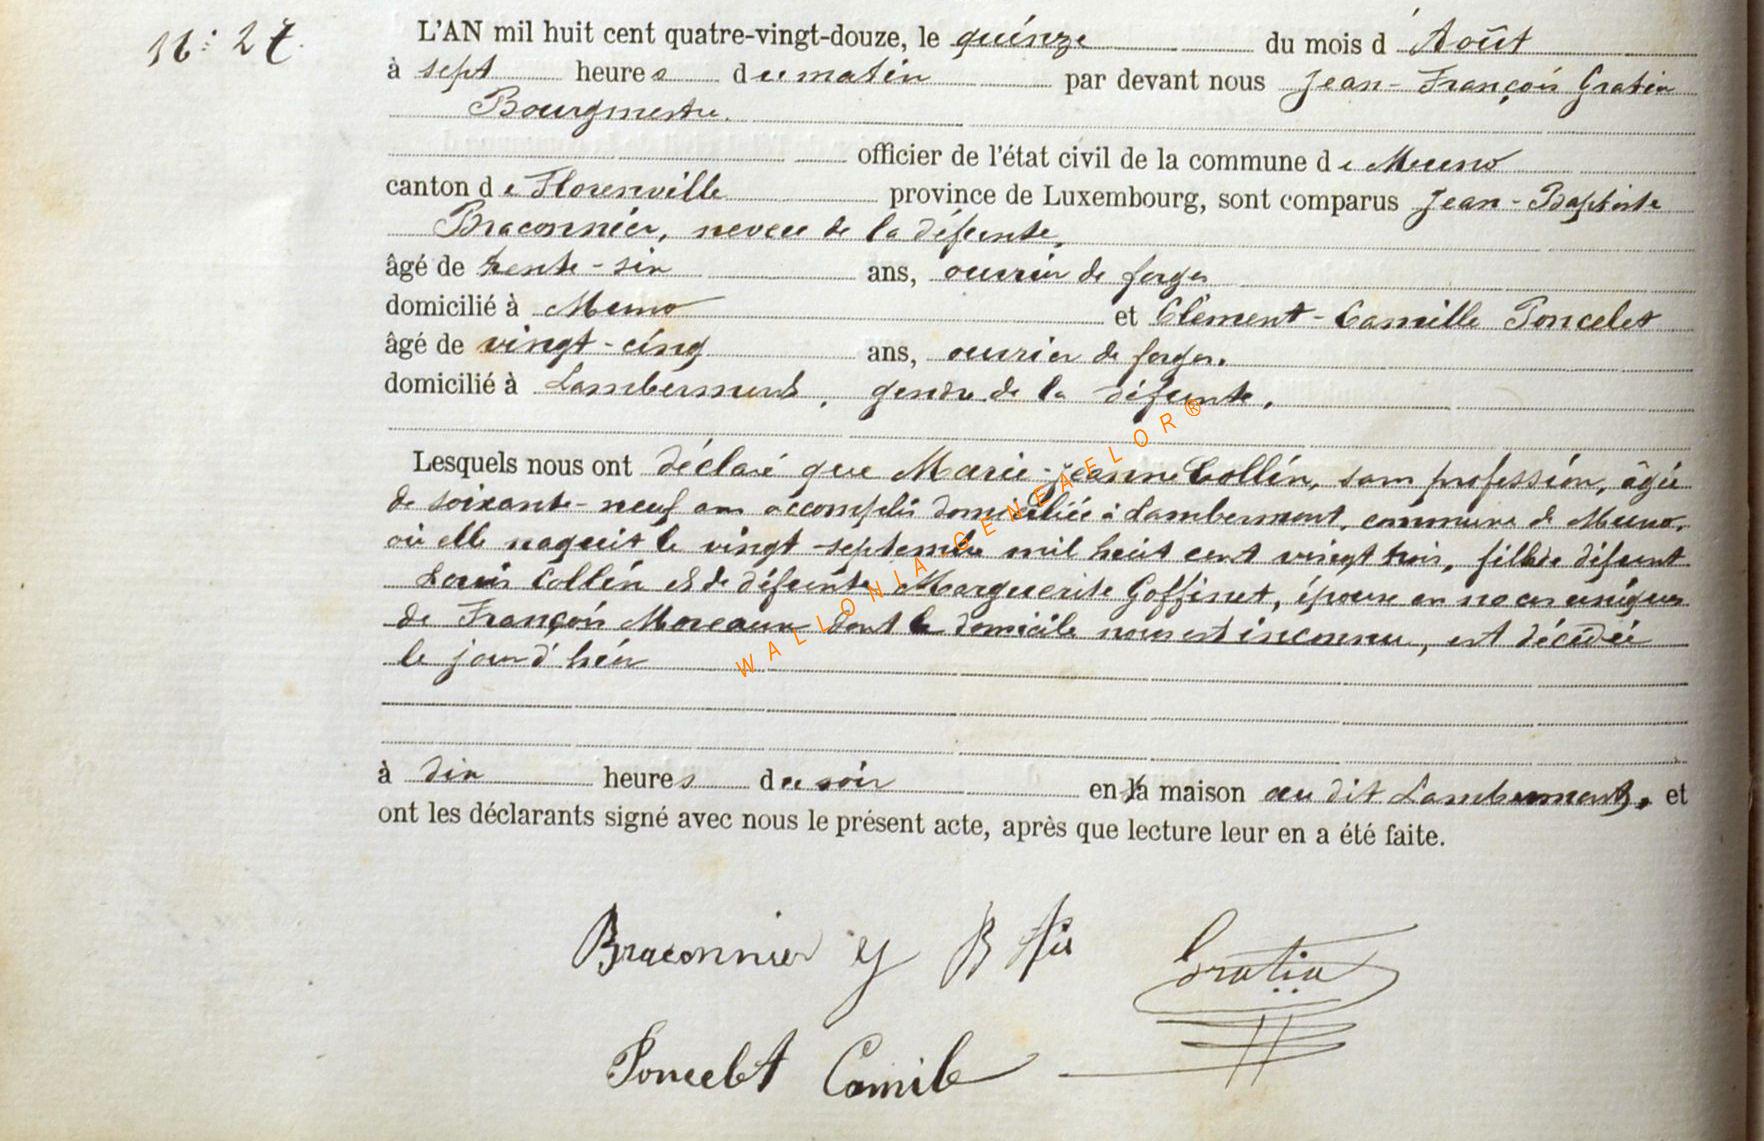 N: 27.
L'AN mil huit cent quatre-vingt-douze, le quinze du mois d'Août
à sept heures du matin par devant nous Jean-François Gratia
Bourgmestre.
officier de l'état civil de la commune de Muno
canton de Florenville province de Luxembourg, sont comparus Jean-Baptiste
Braconnier, neveu de la défunte,
âgé de trente-six ans, ouvrier de forges
domicilié à Muno et Clément-Camille Poncelet
âgé de vingt-cinq ans, ouvrier de forges.
domicilié à Lambermont, gendre de la défunte.
Lesquels nous ont déclaré que Marie-Jeanne Collin, sans profession, âgée
de soixante-neuf ans accomplis domiciliée à Lambermont, commune de Muno,
où elle naquit le vingt septembre mil huit cent vingt trois, fille de défunt
Louis Collin et de défunte Marguerite Goffinet, épouse en noces uniques
de François Moreaux dont le domicile nous est inconnu, est décédée
le jour d'hier
à dix heures du soir en la maison au dit Lambermont, et
ont les déclarants signé avec nous le présent acte, après que lecture leur en a été faite.
Braconnier J B Gratia
Poncelet Camile
WALLONIA GENEAELOR®